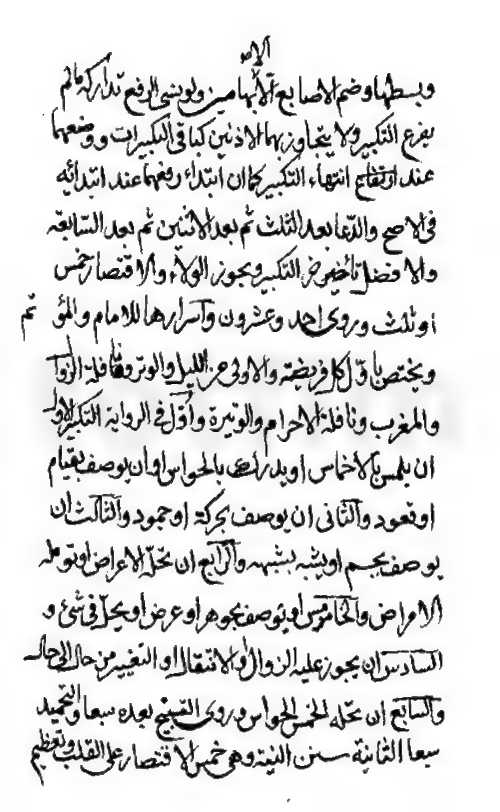 الاص
وبسطها وضم الاصابع الا الابهامين ولو نسى الرفع تداركه ما لم
يفرغ التكبير ولا يتجاوز بهما الاذنين كباقى التكبيرات ووضعهما
عند انتهاء التكبير كما ان ابتداء رفعهما عند ابتدائه
فى الاصح والدعا بعد الثلث ثم بعد الاثنين ثم بعد السابعة
والافضل تأخير التكبير ويجوز الولاء والاقتصار خمس
او ثلث وروى احد وعشرون واسرارها للامام والمؤتم
ويختص باول كل فريضة والاولى من الليل والوتر ونافلة الزوا
والمغرب ونافلة الاحرام والوتيرة واول فى الرواية التكبير الاول
ان يلمس بالاخماس او يدرك بالحواس او ان يوصف بقيام
او قعود والثانى ان يوصف بحركة او جمود والثالث ان
يوصف بجسم او يشبه بشبه والرابع ان تحله الاعراض او تولمه
الامراض والخامس او يوصف بجوهر او عرض او يحل فى شئ و
السادس ان يجوز عليه الزوال والانتقال او التغيير من حال الى حال
والسابع ان تحله الخمس الحواس وروى التسبيح بعده سبعا والتحميد
سبعا الثانية سنن النية وهى خمس الاقتصار على القلب وتعظيم